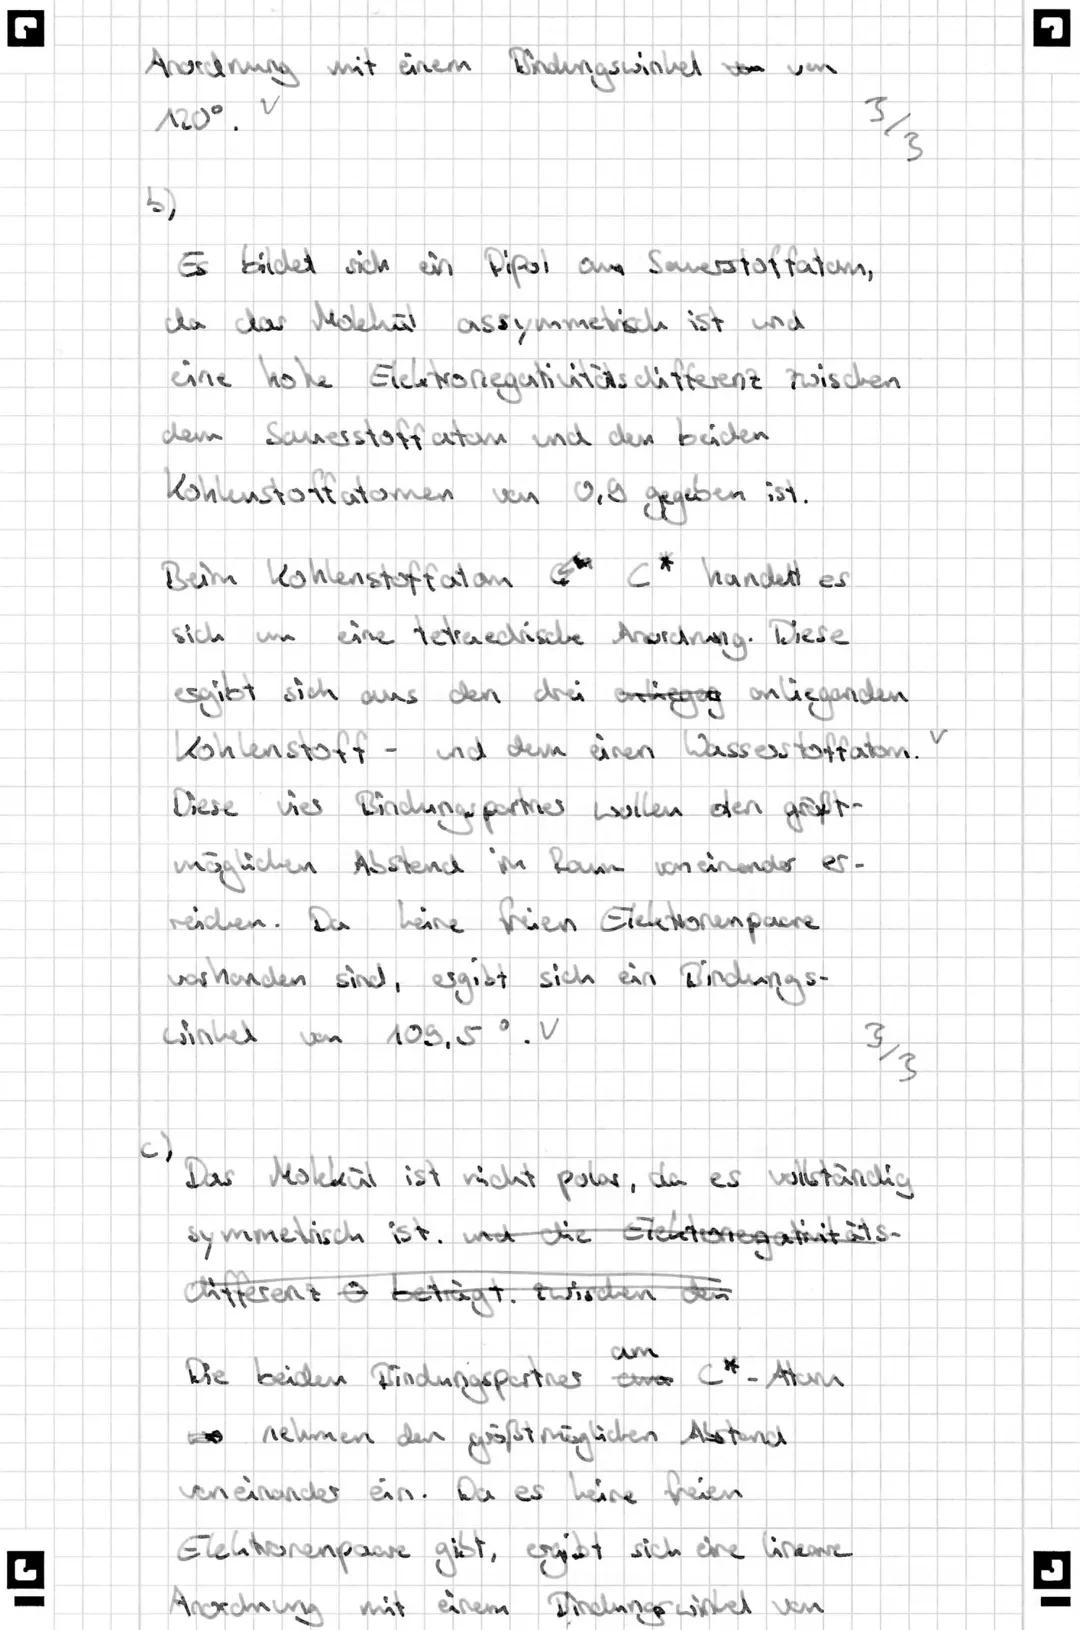 Anordnung mit einem Bindungswinkel von
120°. V
3/3
b),
Es bildet sich ein Dipol am Sauerstoffatom,
da das Molekül assymmetrisch ist und
eine hohe Elektronegativitätsdifferenz zwischen
dem Sauerstoffatom und den beiden
Kohlenstoffatomen von 0,9 gegeben ist.
Beim Kohlenstoffatom C* handelt es
sich um eine tetraedrische Anordnung. Diese
ergibt sich aus den drei anliegenden
Kohlenstoff- und dem einen Wasserstoffatom. V
Diese vier Bindungspartner wollen den größt-
möglichen Abstand im Raum voneinander er-
reichen. Da keine freien Elektronenpaare
vorhanden sind, ergibt sich ein Bindungs-
winkel von 109,5°. V
3/3
c),
Das Molekül ist nicht polar, da es vollständig
symmetrisch ist. und die Elektronegativitäts-
differenz 0 beträgt. zwischen den
am
Die beiden Bindungspartner C*-Atom
nehmen den größtmöglichen Abstand
voneinander ein. Da es keine freien
Elektronenpaare gibt, ergibt sich eine lineare
Anordnung mit einem Bindungswinkel von